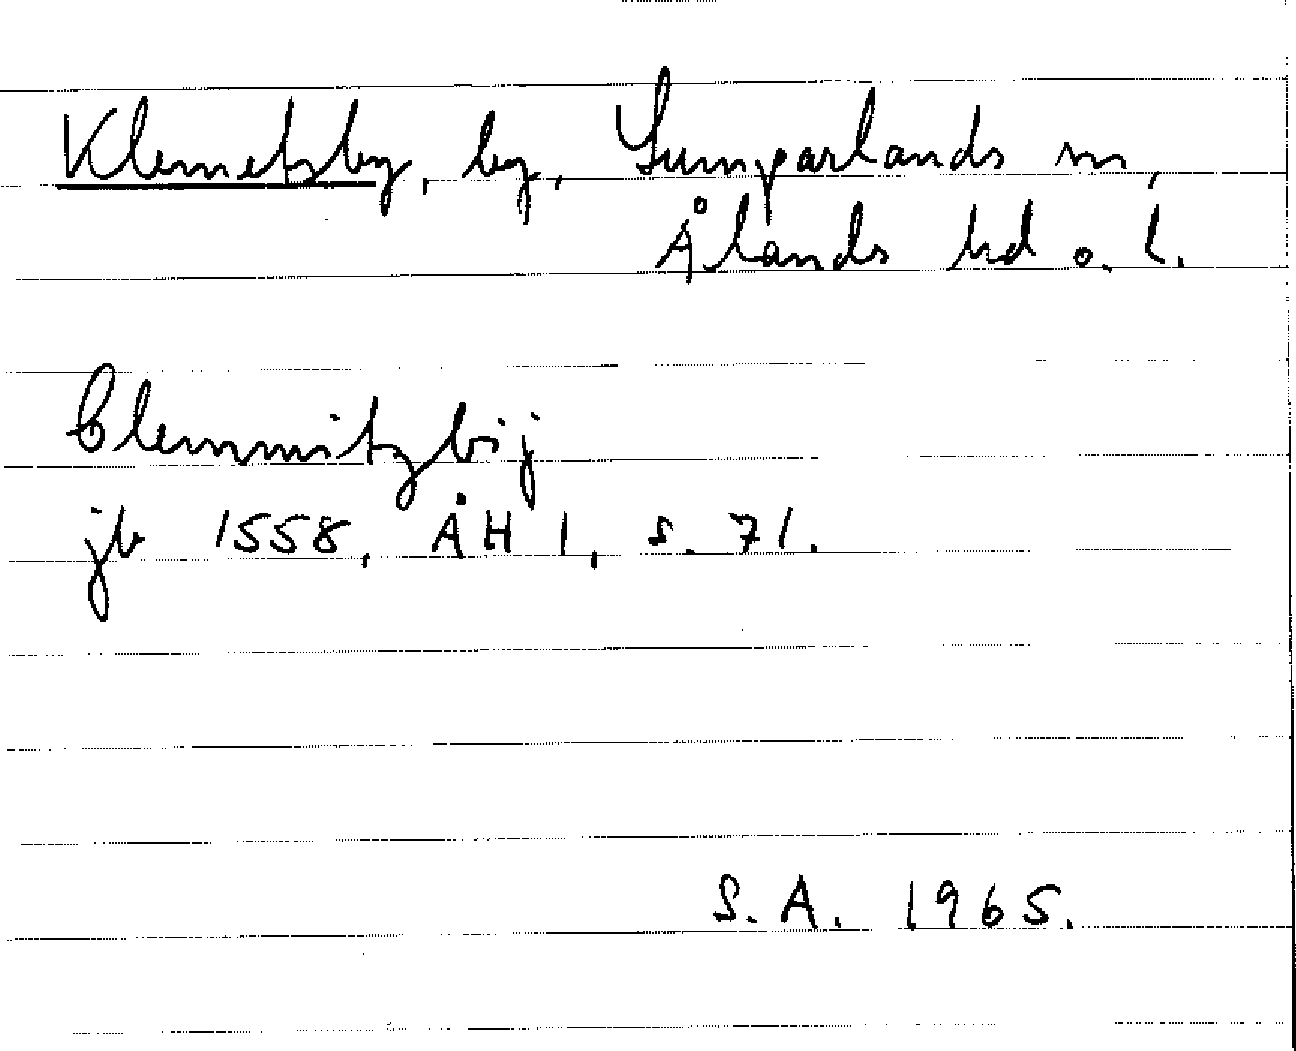 Klemetsby, by, Lumparlands sn,
Ålands hd o. l.
Clemmitzbij
jb 1558, ÅH 1, s. 71.
S.A. 1965.